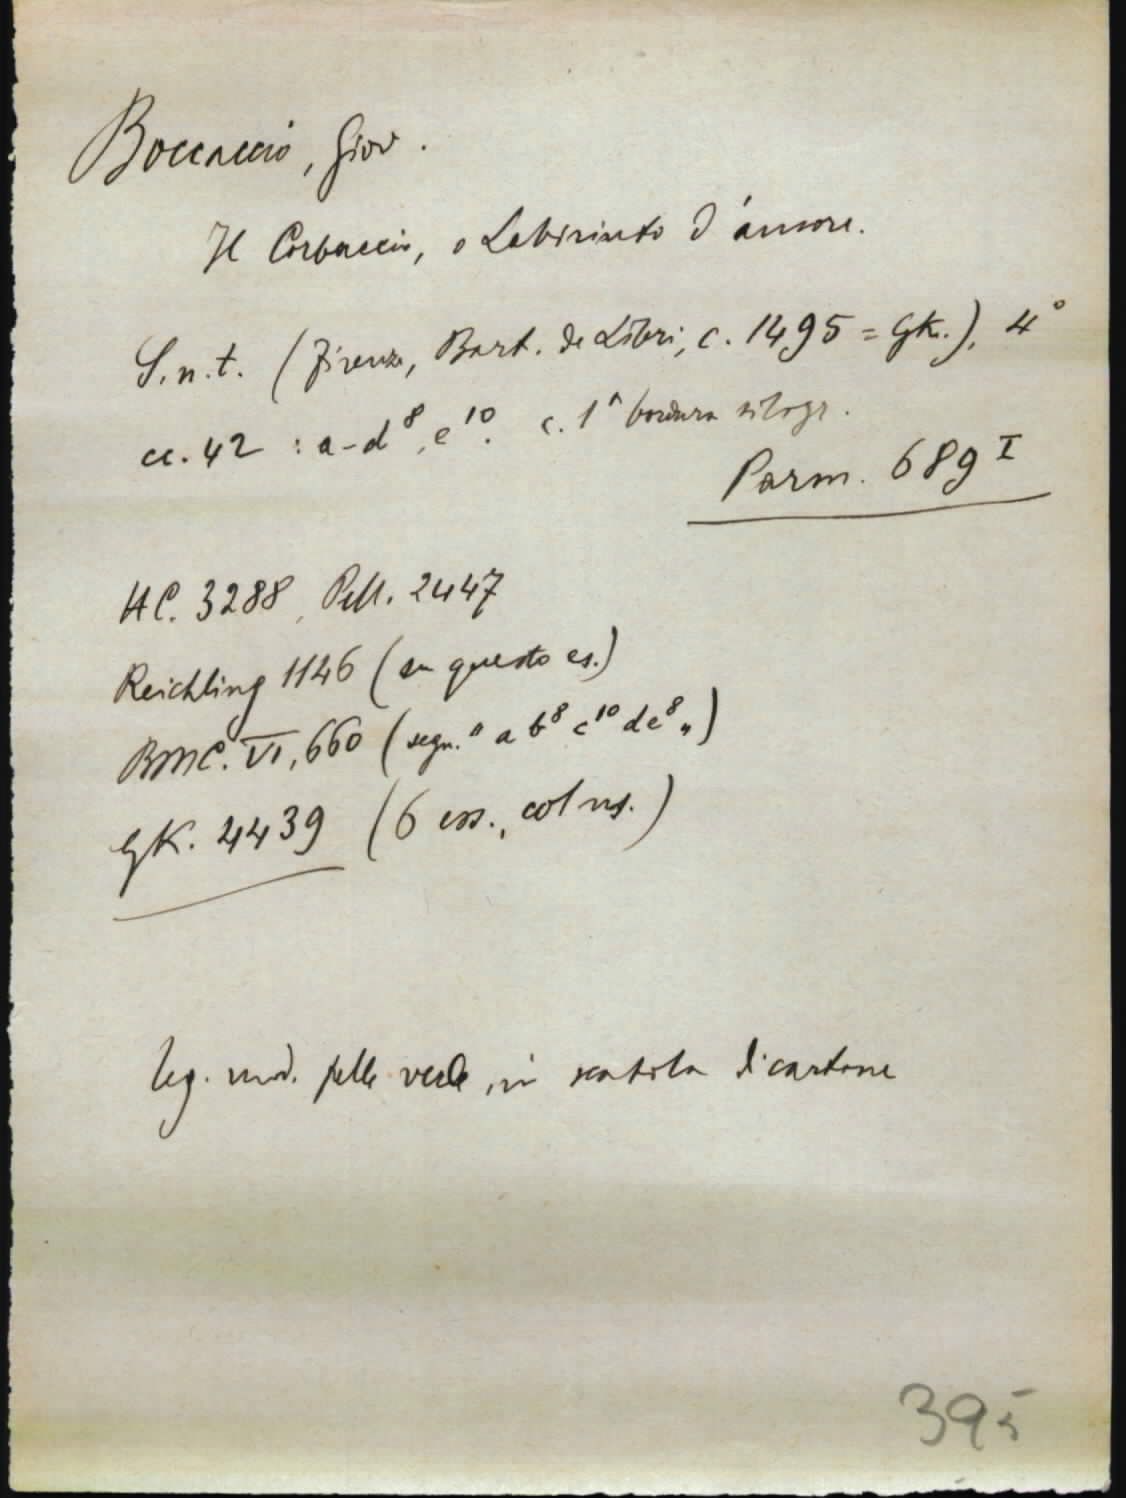 Boccaccio, Giov.
Il Corbaccio, o Labirinto d'amore.
S.n.t. (Firenze, Bart. de Libri, c. 1495 = GK.), 4°
cc. 42 : a-d⁸, e¹⁰. c. 1ᵃ bordura silogr.
Parm. 689 I
HC. 3288, Pell. 2447
Reichling 1146 (su questo es.)
BMC. VI, 660 (segn. "a b⁸ c¹⁰ d e⁸")
GK. 4439 (6 ess., col ns.)
leg. mod. pelle verde, in scatola di cartone
395